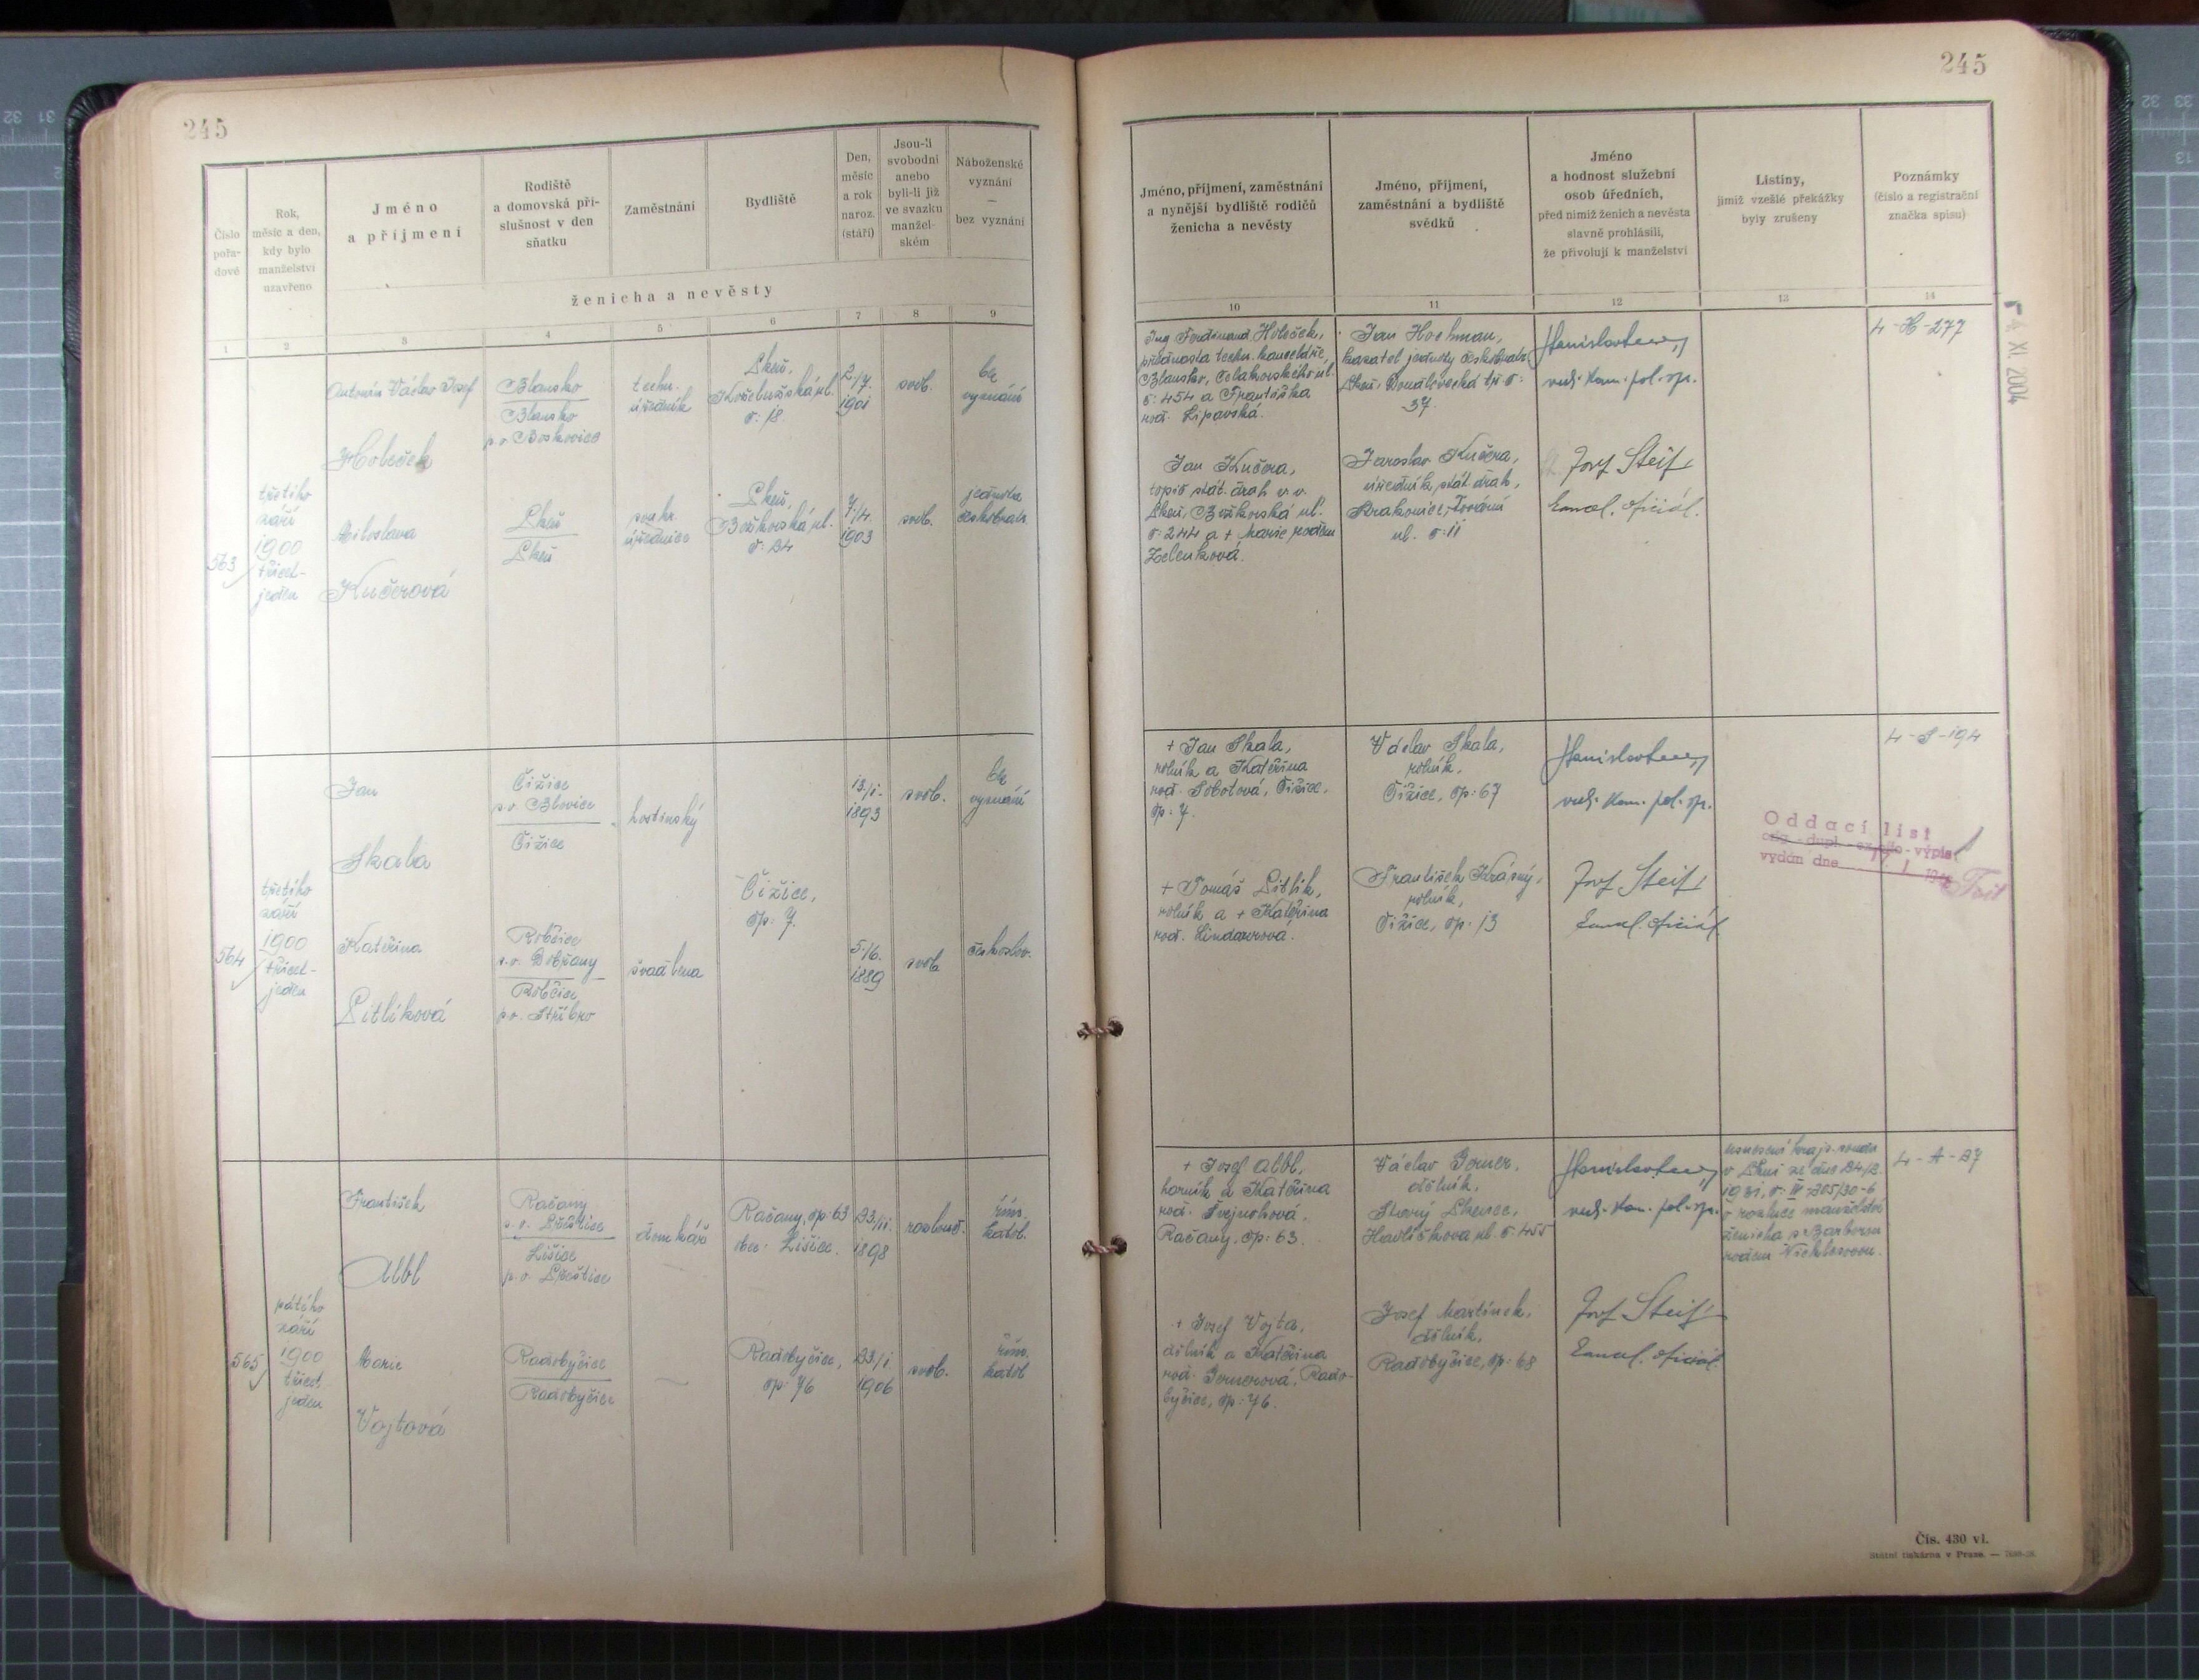 245
Číslo
pořa-
dové
Rok,
měsíc a den,
kdy bylo
manželství
uzavřeno
Jméno
a příjmení
Rodiště
a domovská pří-
slušnost v den
sňatku
Zaměstnání
Bydliště
Den,
měsíc
a rok
naroz.
(stáří)
Jsou-li
svobodni
anebo
byli-li již
ve svazku
manžel-
ském
Náboženské
vyznání
—
bez vyznání
ženicha a nevěsty
1 2 3 4 5 6 7 8 9
563
třetího
září
1900
třicet-
jeden
Antonín Václav Josef
Holeček
Blansko
Blansko
p.o. Boskovice
techn.
úředník
Plzeň,
č: 18.
2./7.
1901
svob.
bez
vyznání
Miloslava
Kučerová
Plzeň
Plzeň
soukr.
úřednice
Plzeň,
Božkovská ul.
č: 24
7./4.
1903
svob.
jednota
českobratr.
564
třetího
září
1900
třicet-
jeden
Jan
Skala
Čižice
p.o. Blovice
Čižice
hostinský
Čižice,
čp: 7.
13./1.
1893
svob.
bez
vyznání
Kateřina
Litlíková
Robčice
s.o. Dobřany
Robčice
p.o. Stříbro
švadlena
5./6.
1889
svob.
českoslov.
565
pátého
září
1900
třicet
jeden
František
Albl
Račany
s.o. Přeštice
Lišice
p.o. Přeštice
domkář
Račany, čp: 63
obec: Lišice.
1898
rozlouč.
řím.
katol.
Marie
Vojtová
Radobyčice
Radobyčice
Radobyčice,
čp: 76
23./1
1906
svob.
řím.
katol
245
Jméno, příjmení, zaměstnání
a nynější bydliště rodičů
ženicha a nevěsty
Jméno, příjmení,
zaměstnání a bydliště
svědků
Jméno
a hodnost služební
osob úředních,
před nimiž ženich a nevěsta
slavně prohlásili,
že přivolují k manželství
Listiny,
jimiž vzešlé překážky
byly zrušeny
Poznámky
(číslo a registrační
značka spisu)
10 11 12 13 14
Ing Ferdinand Holeček,
přednosta techn. kanceláře,
Blansko, Čelakovského ul.
č: 454 a Františka
roz. Lipavská.
Jan Kučera,
topič stát. drah v. v.
Plzeň, Božkovská ul.
č: 244 a + Marie rozená
Zelenková.
Jan Hochman,
kazatel jednoty českobratr.
Plzeň, Doudlevecká tř. č:
37.
Jaroslav Kučera,
úředník stát. drah,
Strakonice, Tovární
ul. č: 11
vrch. kom. pol. spr.
Josef Steif
kancel. oficiál.
4-H-277
XI. 2004
+ Jan Skala,
rolník a Kateřina
roz. Sobotová, Čižice,
čp: 7.
+ Tomáš Litlík,
rolník a + Kateřina
roz. Lindaurová.
Václav Skala,
rolník,
Čižice, čp: 67
František Krásný,
rolník,
Čižice, čp: 13
vrch. kom. pol. spr.
Josef Steif
kancel. oficiál
4-S-194
Oddací list
výpis
vydán dne
+ Josef Albl,
horník a Kateřina
roz. Švejnohová,
Račany, čp: 63.
+ Josef Vojta,
dělník a Kateřina
roz. Jernerová, Rado-
byčice, čp: 76.
Václav Jerner,
dělník,
Starý Plzenec,
Havlíčkova ul. č: 455
Josef Martínek,
dělník,
Radobyčice, čp: 68
vrch. kom. pol. spr.
Josef Steif
kancel. oficiál
Usnesení kraj. soudu
v Plzni ze dne 24./2.
1931, č: III-305/30-6
o rozluce manželství
ženicha s Barborou
4-A-27
Čís. 430 vl.
Státní tiskárna v Praze. —